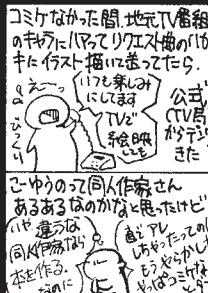 コミケなかった間、地元TV番組
のキャラにハマってリクエスト曲のハガ
キにイラスト描いて送ってたら、
えーっ
びっくり
いつも楽しみ
にしてます
TVで
絵映
しても
公式
(TV局)
から
きた
こーゆうのって同人作家さん
あるあるなのかなと思ったけど
いや違うな
同人作家なら
本を作る。
なのに
アレ
しちゃったっての
もうやらかし
やっぱコミケな